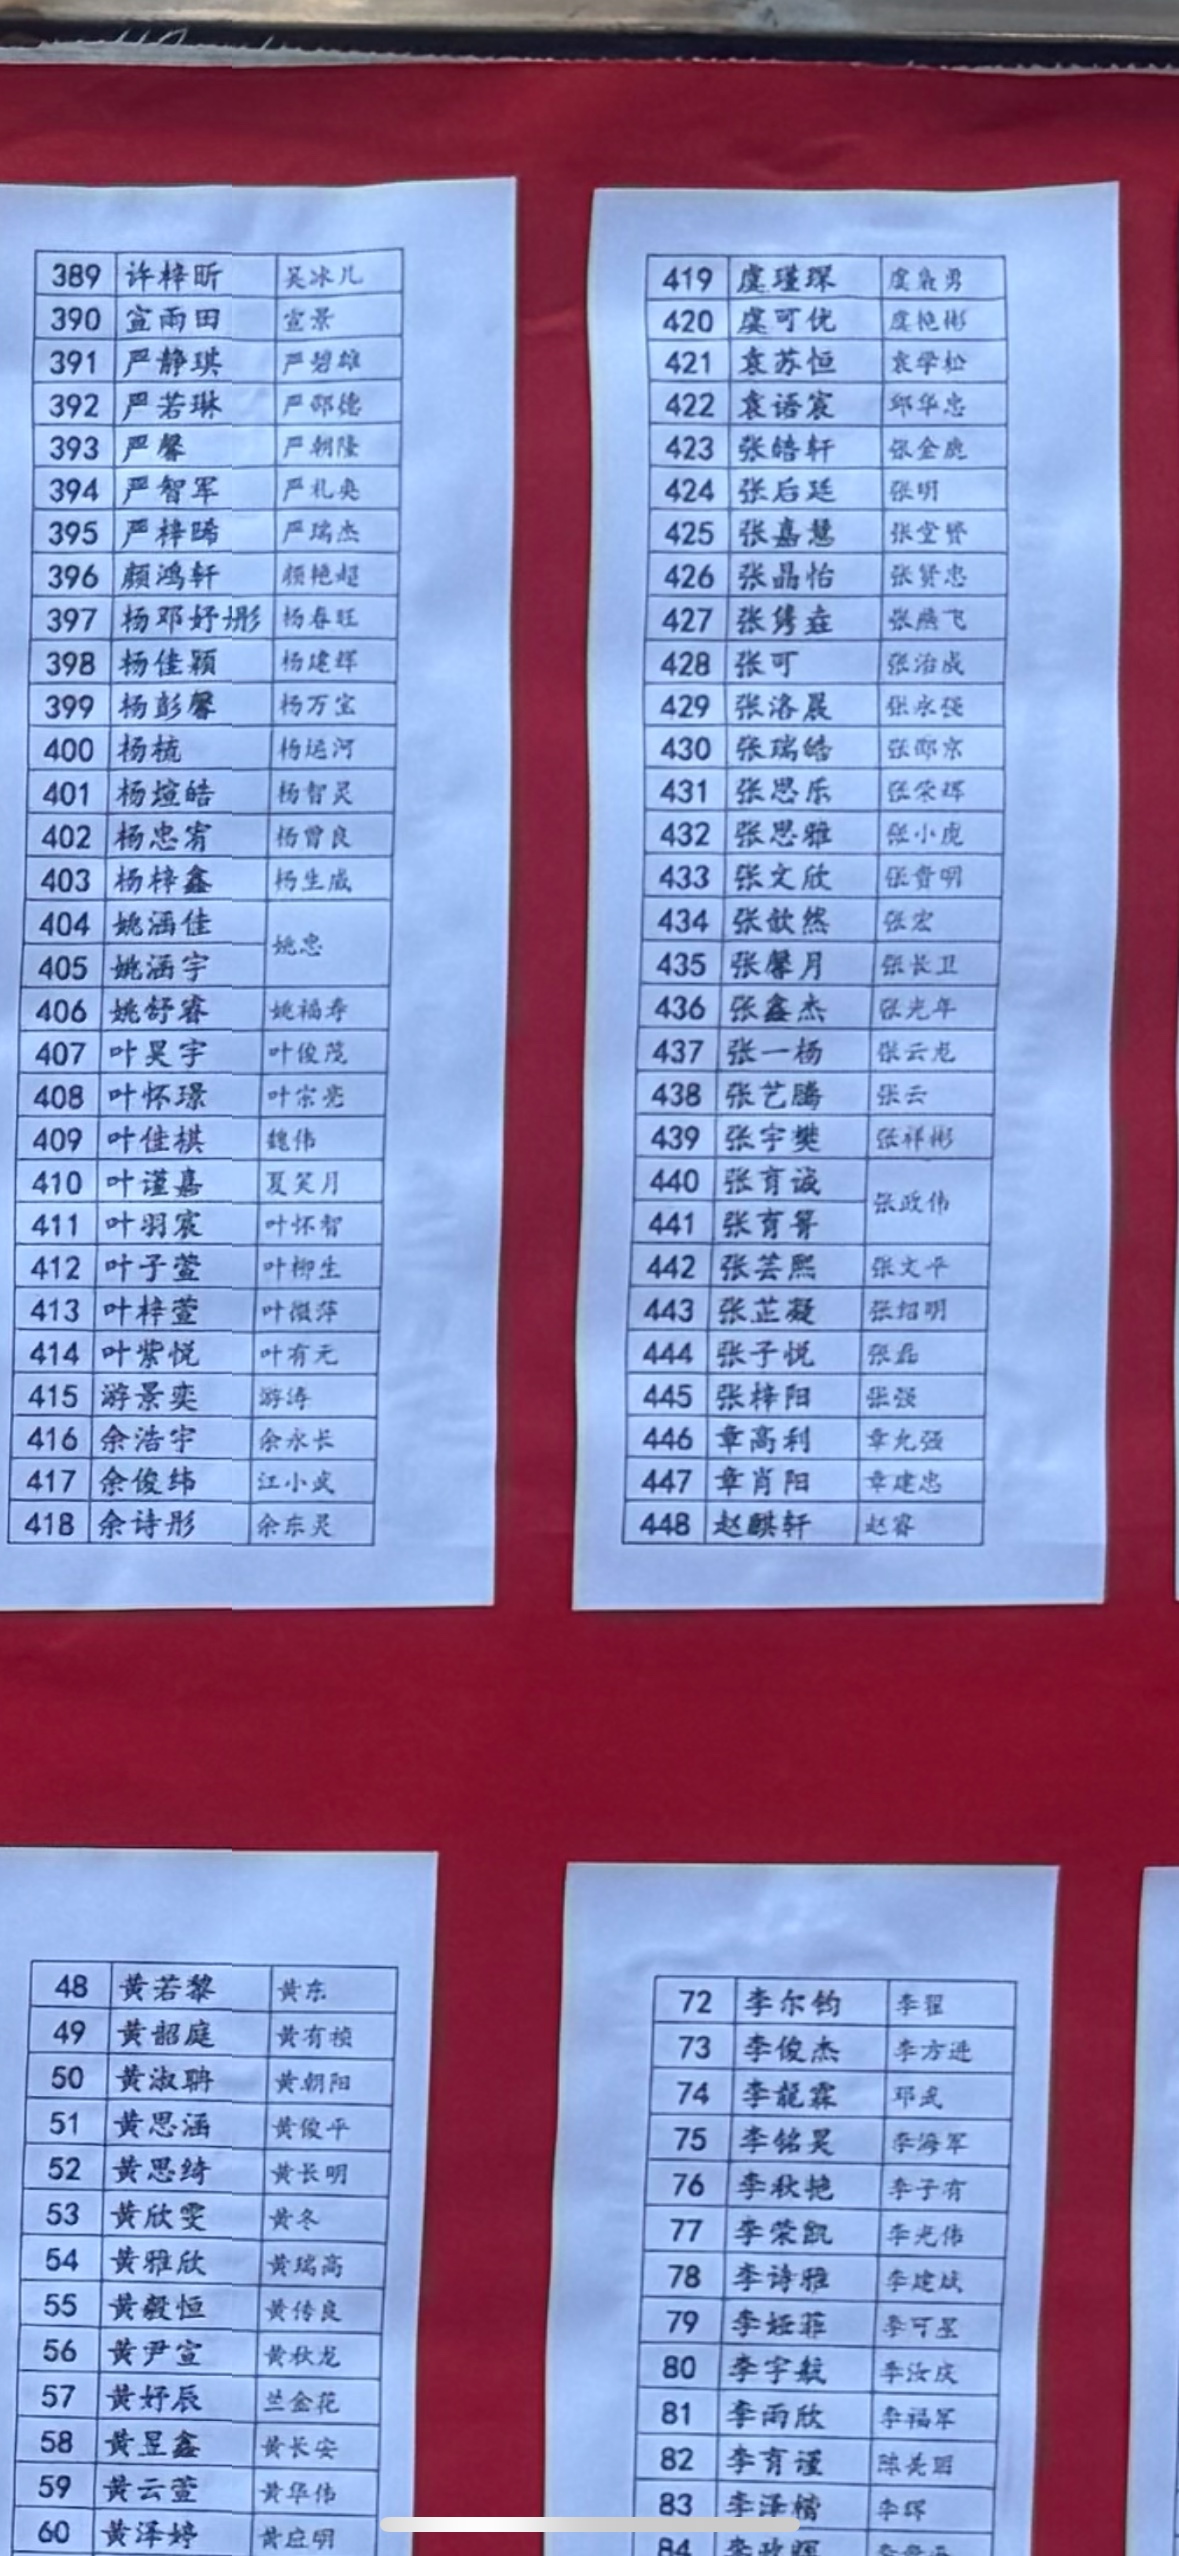 389 许梓昕 吴冰儿
390 宣雨田 宣景
391 严静琪 严碧雄
392 严若琳 严邵德
393 严馨 严朝隆
394 严智军 严礼央
395 严梓晞 严瑞杰
396 颜鸿轩 颜艳超
397 杨邓妤彤 杨春旺
398 杨佳颖 杨建辉
399 杨彭馨 杨万宝
400 杨梳 杨运河
401 杨煊皓 杨智灵
402 杨忠宥 杨曾良
403 杨梓鑫 杨生威
404 姚涵佳 姚忠
405 姚涵宇
406 姚舒睿 姚福寿
407 叶昊宇 叶俊茂
408 叶怀璟 叶宗亮
409 叶佳棋 魏伟
410 叶谨嘉 夏笑月
411 叶羽宸 叶怀智
412 叶子萱 叶柳生
413 叶梓萱 叶微萍
414 叶紫悦 叶有元
415 游景奕 游涛
416 余浩宇 余永长
417 余俊纬 江小武
418 余诗彤 余东灵
419 虞瑾琛 虞枭勇
420 虞可优 虞艳彬
421 袁苏恒 袁学松
422 袁语宸 邱华忠
423 张皓轩 张金虎
424 张后廷 张明
425 张嘉慧 张堂贤
426 张晶怡 张贤忠
427 张隽垚 张腾飞
428 张可 张治成
429 张洛晨 张永强
430 张瑞皓 张邵京
431 张思乐 张荣辉
432 张思雅 张小虎
433 张文欣 张贵明
434 张歆然 张宏
435 张馨月 张长卫
436 张鑫杰 张光年
437 张一杨 张云龙
438 张艺腾 张云
439 张宇樊 张祥彬
440 张育诚 张政伟
441 张育箐
442 张芸熙 张文平
443 张芷凝 张绍明
444 张子悦 张磊
445 张梓阳 张强
446 章高利 章允强
447 章肖阳 章建忠
448 赵麒轩 赵睿
48 黄若黎 黄东
49 黄韶庭 黄有祯
50 黄淑聃 黄朝阳
51 黄思涵 黄俊平
52 黄思绮 黄长明
53 黄欣雯 黄冬
54 黄雅欣 黄瑞高
55 黄毅恒 黄传良
56 黄尹宣 黄秋龙
57 黄妤辰 兰金花
58 黄昱鑫 黄长安
59 黄云萱 黄华伟
60 黄泽婷 黄应明
72 李尔钧 李翟
73 李俊杰 李方进
74 李龍霖 邓武
75 李铭昊 李海军
76 李秋艳 李子有
77 李荣凯 李光伟
78 李诗雅 李建斌
79 李娅菲 李可星
80 李宇航 李汝庆
81 李雨欣 李福军
82 李育谨
83 李泽楷 李辉
84 李政晖